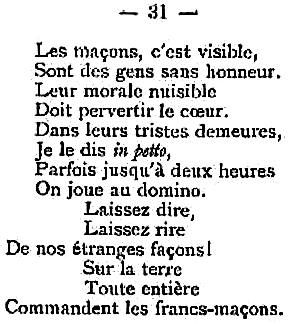 — 31 —
Les maçons, c'est visible,
Sont des gens sans honneur.
Leur morale nuisible
Doit pervertir le cœur.
Dans leurs tristes demeures,
Je le dis in petto,
Parfois jusqu'à deux heures
On joue au domino.
Laissez dire,
Laissez rire
De nos étranges façons!
Sur la terre
Toute entière
Commandent les francs-maçons.